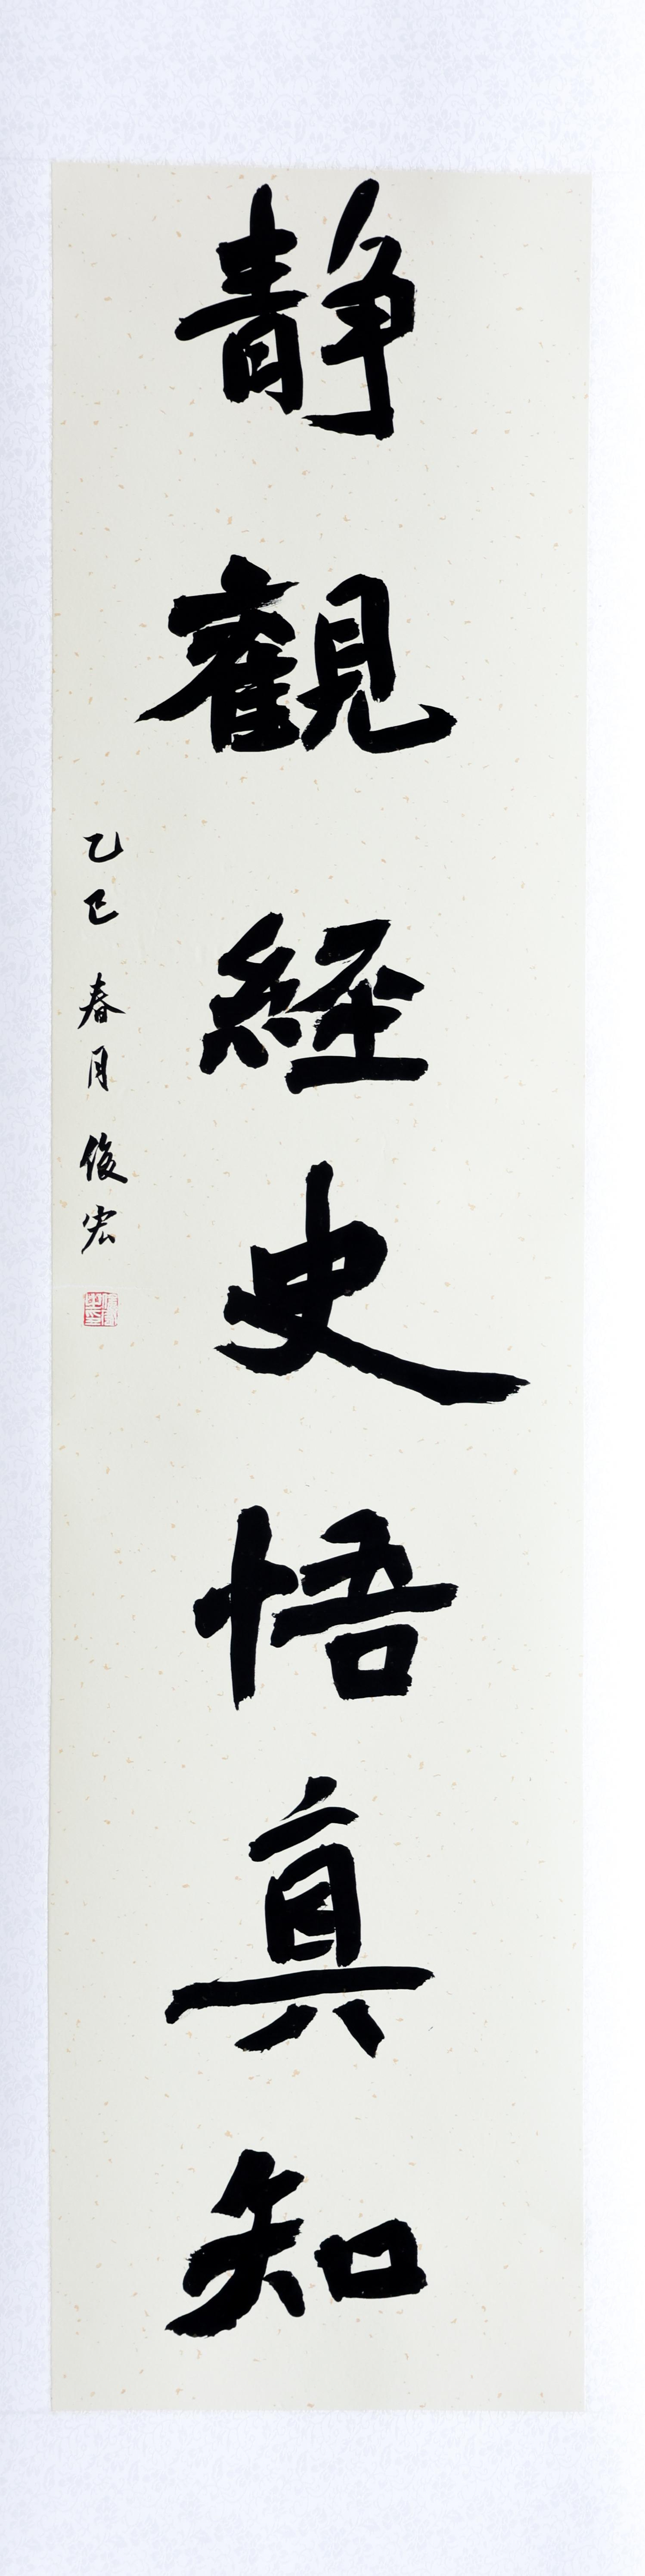 静觀経史悟真知
乙巳 春月 俊宏